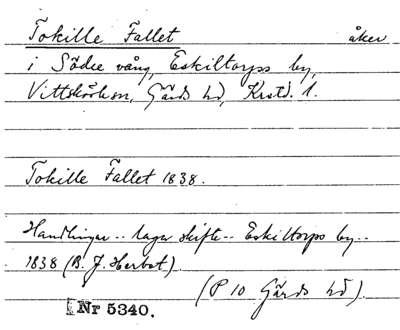 Tokille Fallet åker
i Södre vång, Eskiltorps by,
Vittskövle sn, Gärds hd, Krstd. l.
Tokille Fallet 1838.
Handlingar .. laga skifte .. Eskiltorps by ..
1838 (B. J. Herbst)
(P 10 Gärds hd).
Nr 5340.